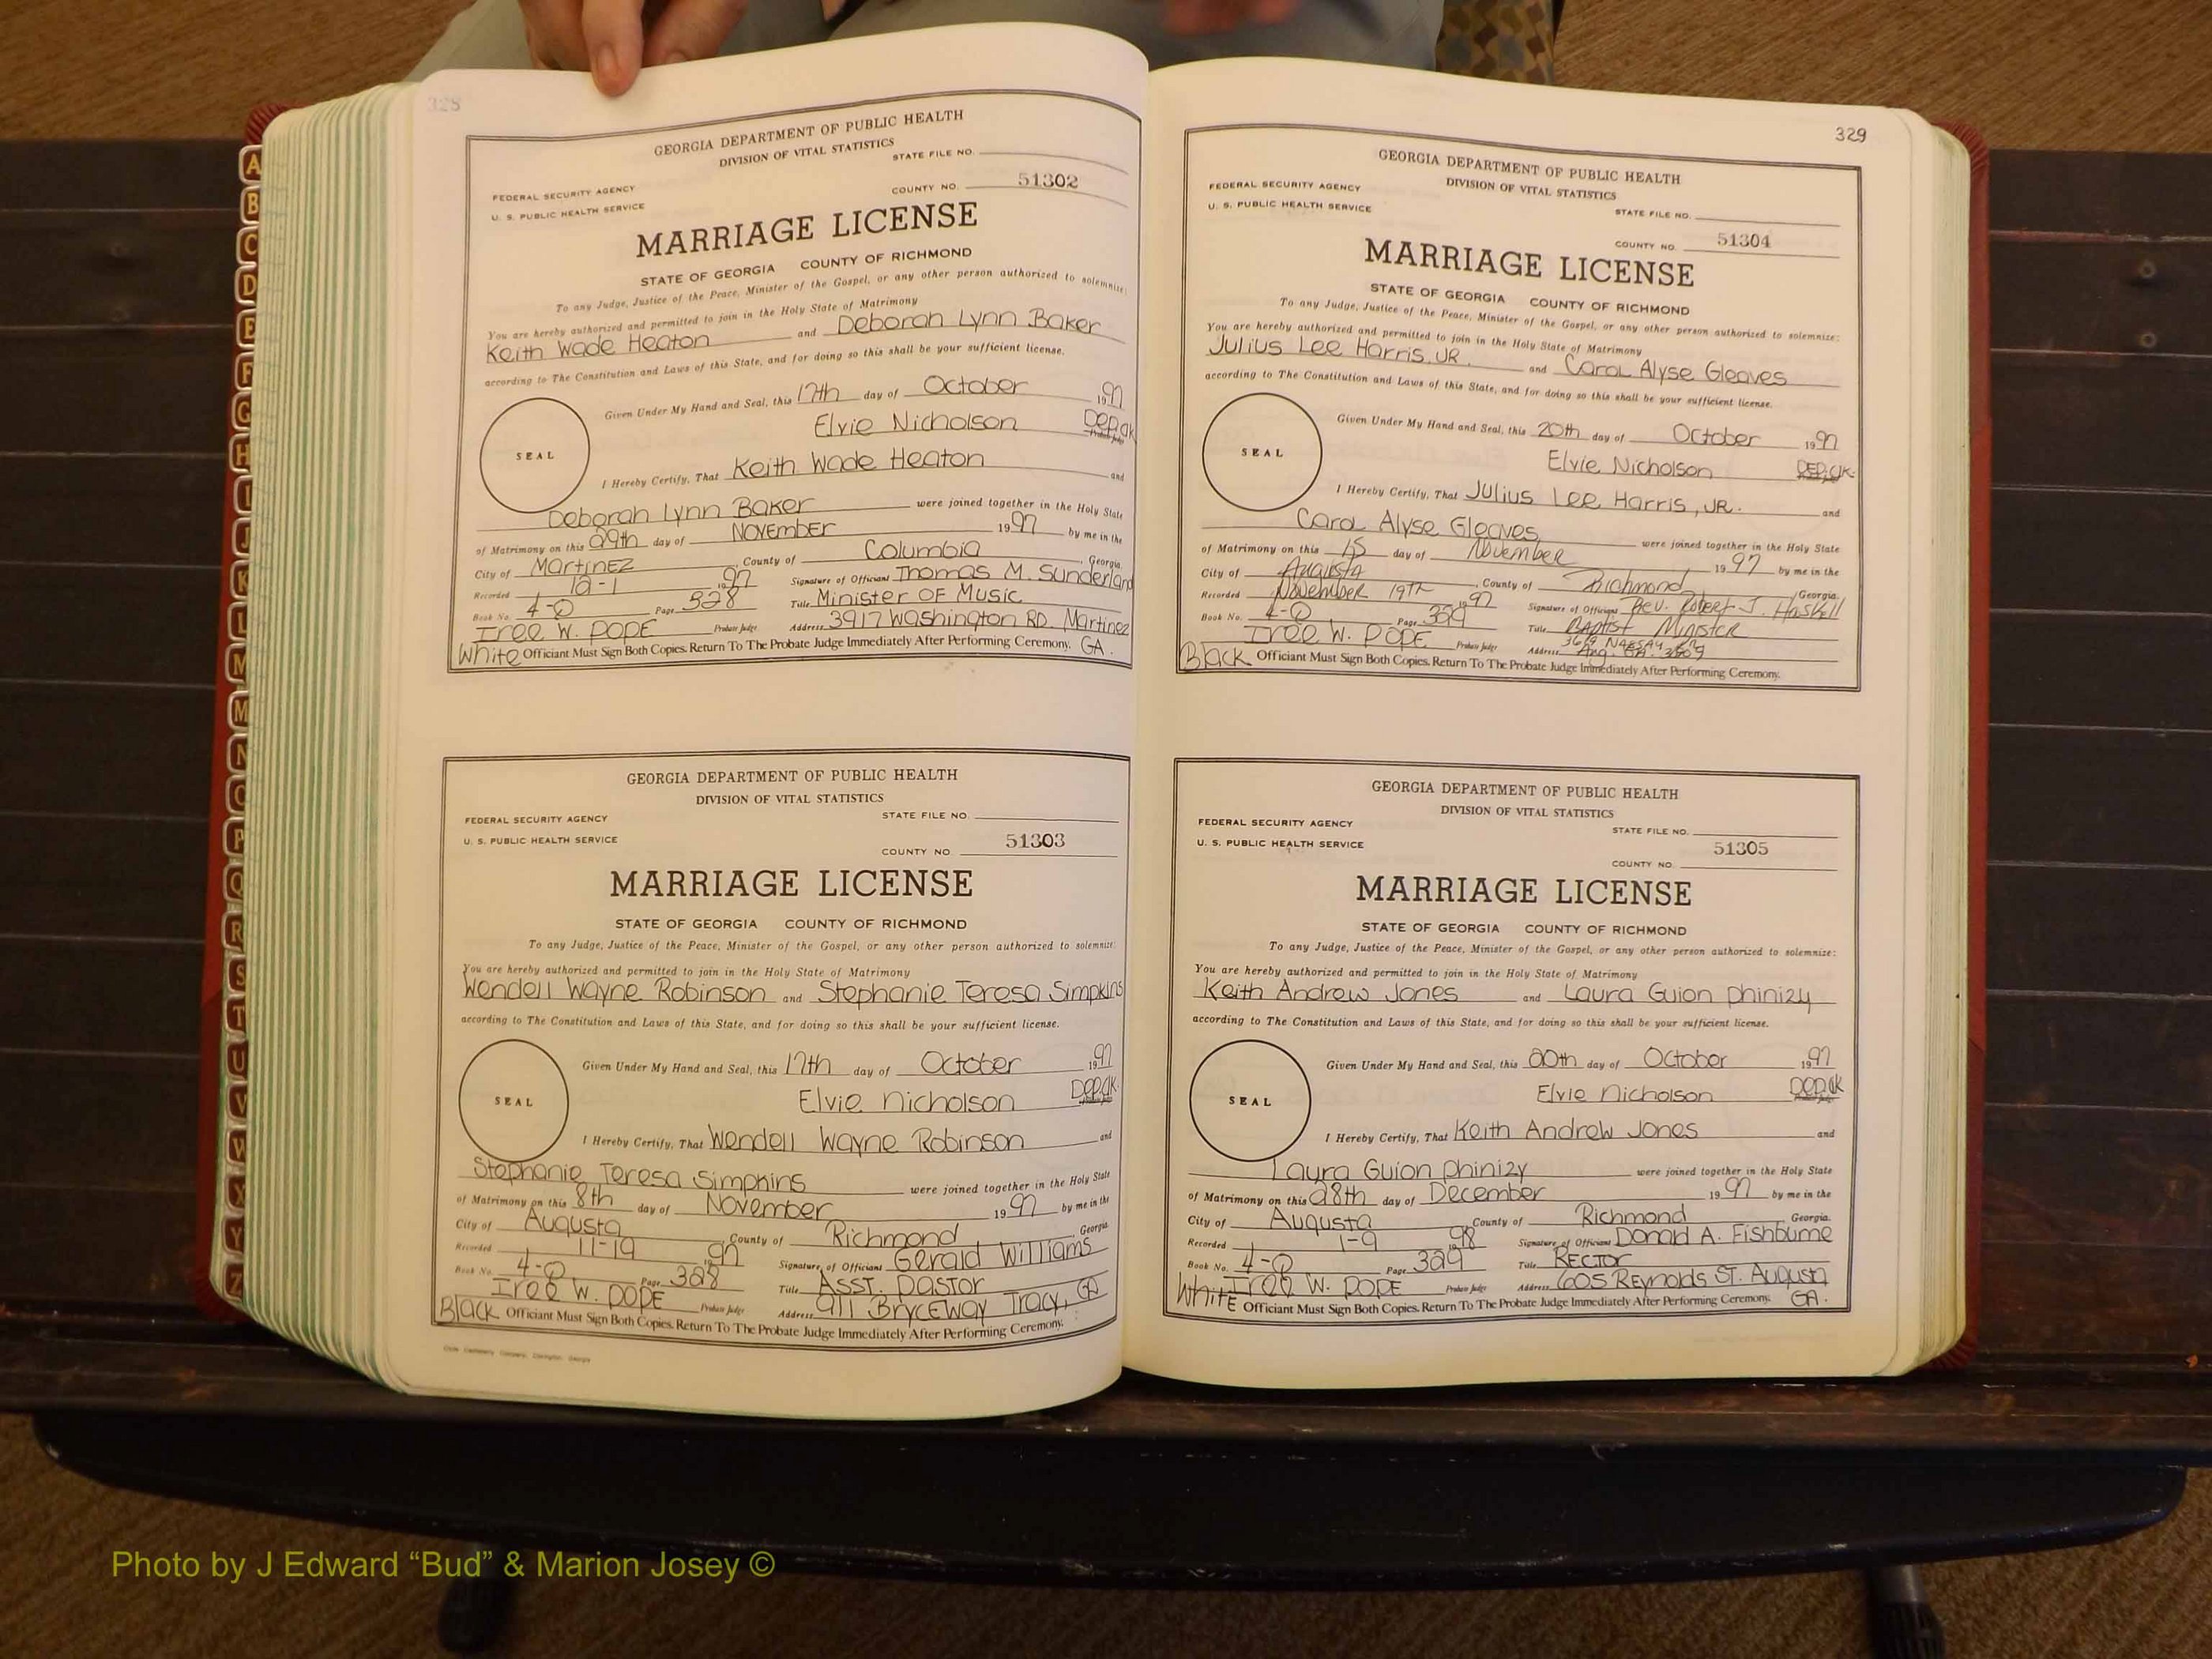 328
GEORGIA DEPARTMENT OF PUBLIC HEALTH
DIVISION OF VITAL STATISTICS
STATE FILE NO.
FEDERAL SECURITY AGENCY
COUNTY NO. 51302
U. S. PUBLIC HEALTH SERVICE
MARRIAGE LICENSE
STATE OF GEORGIA COUNTY OF RICHMOND
To any Judge, Justice of the Peace, Minister of the Gospel, or any other person authorized to solemnize:
You are hereby authorized and permitted to join in the Holy State of Matrimony
Keith Wade Heaton and Deborah Lynn Baker
according to The Constitution and Laws of this State, and for doing so this shall be your sufficient license.
Given Under My Hand and Seal, this 17th day of October 1997
Elvie Nicholson Dep. Clk
SEAL
I Hereby Certify, That Keith Wade Heaton and
Deborah Lynn Baker were joined together in the Holy State
of Matrimony on this 29th day of NOVEMBER 1997 by me in the
City of Martinez, County of Columbia, Georgia.
Recorded 12-1 1997 Signature of Officiant Thomas M. Sunderland
Book No. 4-Q Page 328 Title Minister OF Music
Iree W. POPE Probate Judge Address 3917 Washington RD. Martinez
White Officiant Must Sign Both Copies. Return To The Probate Judge Immediately After Performing Ceremony. GA.
GEORGIA DEPARTMENT OF PUBLIC HEALTH
DIVISION OF VITAL STATISTICS
STATE FILE NO.
FEDERAL SECURITY AGENCY
U. S. PUBLIC HEALTH SERVICE
COUNTY NO. 51303
MARRIAGE LICENSE
STATE OF GEORGIA COUNTY OF RICHMOND
To any Judge, Justice of the Peace, Minister of the Gospel, or any other person authorized to solemnize:
You are hereby authorized and permitted to join in the Holy State of Matrimony
Wendell Wayne Robinson and Stephanie Teresa Simpkins
according to The Constitution and Laws of this State, and for doing so this shall be your sufficient license.
Given Under My Hand and Seal, this 17th day of October 1997
Elvie Nicholson Dep. Clk
SEAL
I Hereby Certify, That Wendell Wayne Robinson and
Stephanie Teresa Simpkins were joined together in the Holy State
of Matrimony on this 8th day of November 1997 by me in the
City of Augusta, County of Richmond, Georgia
Recorded 11-19 1997 Signature of Officiant Gerald Williams
Book No. 4-Q Page 328 Title Asst. Pastor
Iree W. POPE Probate Judge Address 911 Bryceway Tracy, GA
Black Officiant Must Sign Both Copies. Return To The Probate Judge Immediately After Performing Ceremony.
329
GEORGIA DEPARTMENT OF PUBLIC HEALTH
DIVISION OF VITAL STATISTICS
FEDERAL SECURITY AGENCY
U. S. PUBLIC HEALTH SERVICE
STATE FILE NO.
COUNTY NO. 51304
MARRIAGE LICENSE
STATE OF GEORGIA COUNTY OF RICHMOND
To any Judge, Justice of the Peace, Minister of the Gospel, or any other person authorized to solemnize:
You are hereby authorized and permitted to join in the Holy State of Matrimony
Julius Lee Harris, JR. and Carol Alyse Gleaves
according to The Constitution and Laws of this State, and for doing so this shall be your sufficient license.
Given Under My Hand and Seal, this 20th day of October 1997
Elvie Nicholson DEP. Clk.
SEAL
I Hereby Certify, That Julius Lee Harris, JR. and
Carol Alyse Gleaves were joined together in the Holy State
of Matrimony on this 15 day of November 1997 by me in the
City of Augusta, County of Richmond, Georgia.
Recorded November 19th 1997 Signature of Officiant Rev. Robert J. Haskell
Book No. 4-Q Page 329 Title Baptist Minister
Iree W. POPE Probate Judge Address Aug. GA.
Black Officiant Must Sign Both Copies. Return To The Probate Judge Immediately After Performing Ceremony.
GEORGIA DEPARTMENT OF PUBLIC HEALTH
DIVISION OF VITAL STATISTICS
FEDERAL SECURITY AGENCY
STATE FILE NO.
U. S. PUBLIC HEALTH SERVICE
COUNTY NO. 51305
MARRIAGE LICENSE
STATE OF GEORGIA COUNTY OF RICHMOND
To any Judge, Justice of the Peace, Minister of the Gospel, or any other person authorized to solemnize:
You are hereby authorized and permitted to join in the Holy State of Matrimony
Keith Andrew Jones and Laura Guion Phinizy
according to The Constitution and Laws of this State, and for doing so this shall be your sufficient license.
Given Under My Hand and Seal, this 20th day of October 1997
Elvie Nicholson Dep. Clk
SEAL
I Hereby Certify, That Keith Andrew Jones and
Laura Guion Phinizy were joined together in the Holy State
of Matrimony on this 28th day of December 1997 by me in the
City of Augusta County of Richmond Georgia.
Recorded 1-9 1998 Signature of Officiant Donald A. Fishburne
Book No. 4-Q Page 329 Title Rector
Iree W. POPE Probate Judge Address 605 Reynolds St. Augusta
White Officiant Must Sign Both Copies. Return To The Probate Judge Immediately After Performing Ceremony. GA.
A
B
C
D
E
F
G
H
I
J
K
L
M
M
N
O
P
Q
R
S
T
U
V
W
X
Y
Z
Photo by J Edward “Bud” & Marion Josey ©